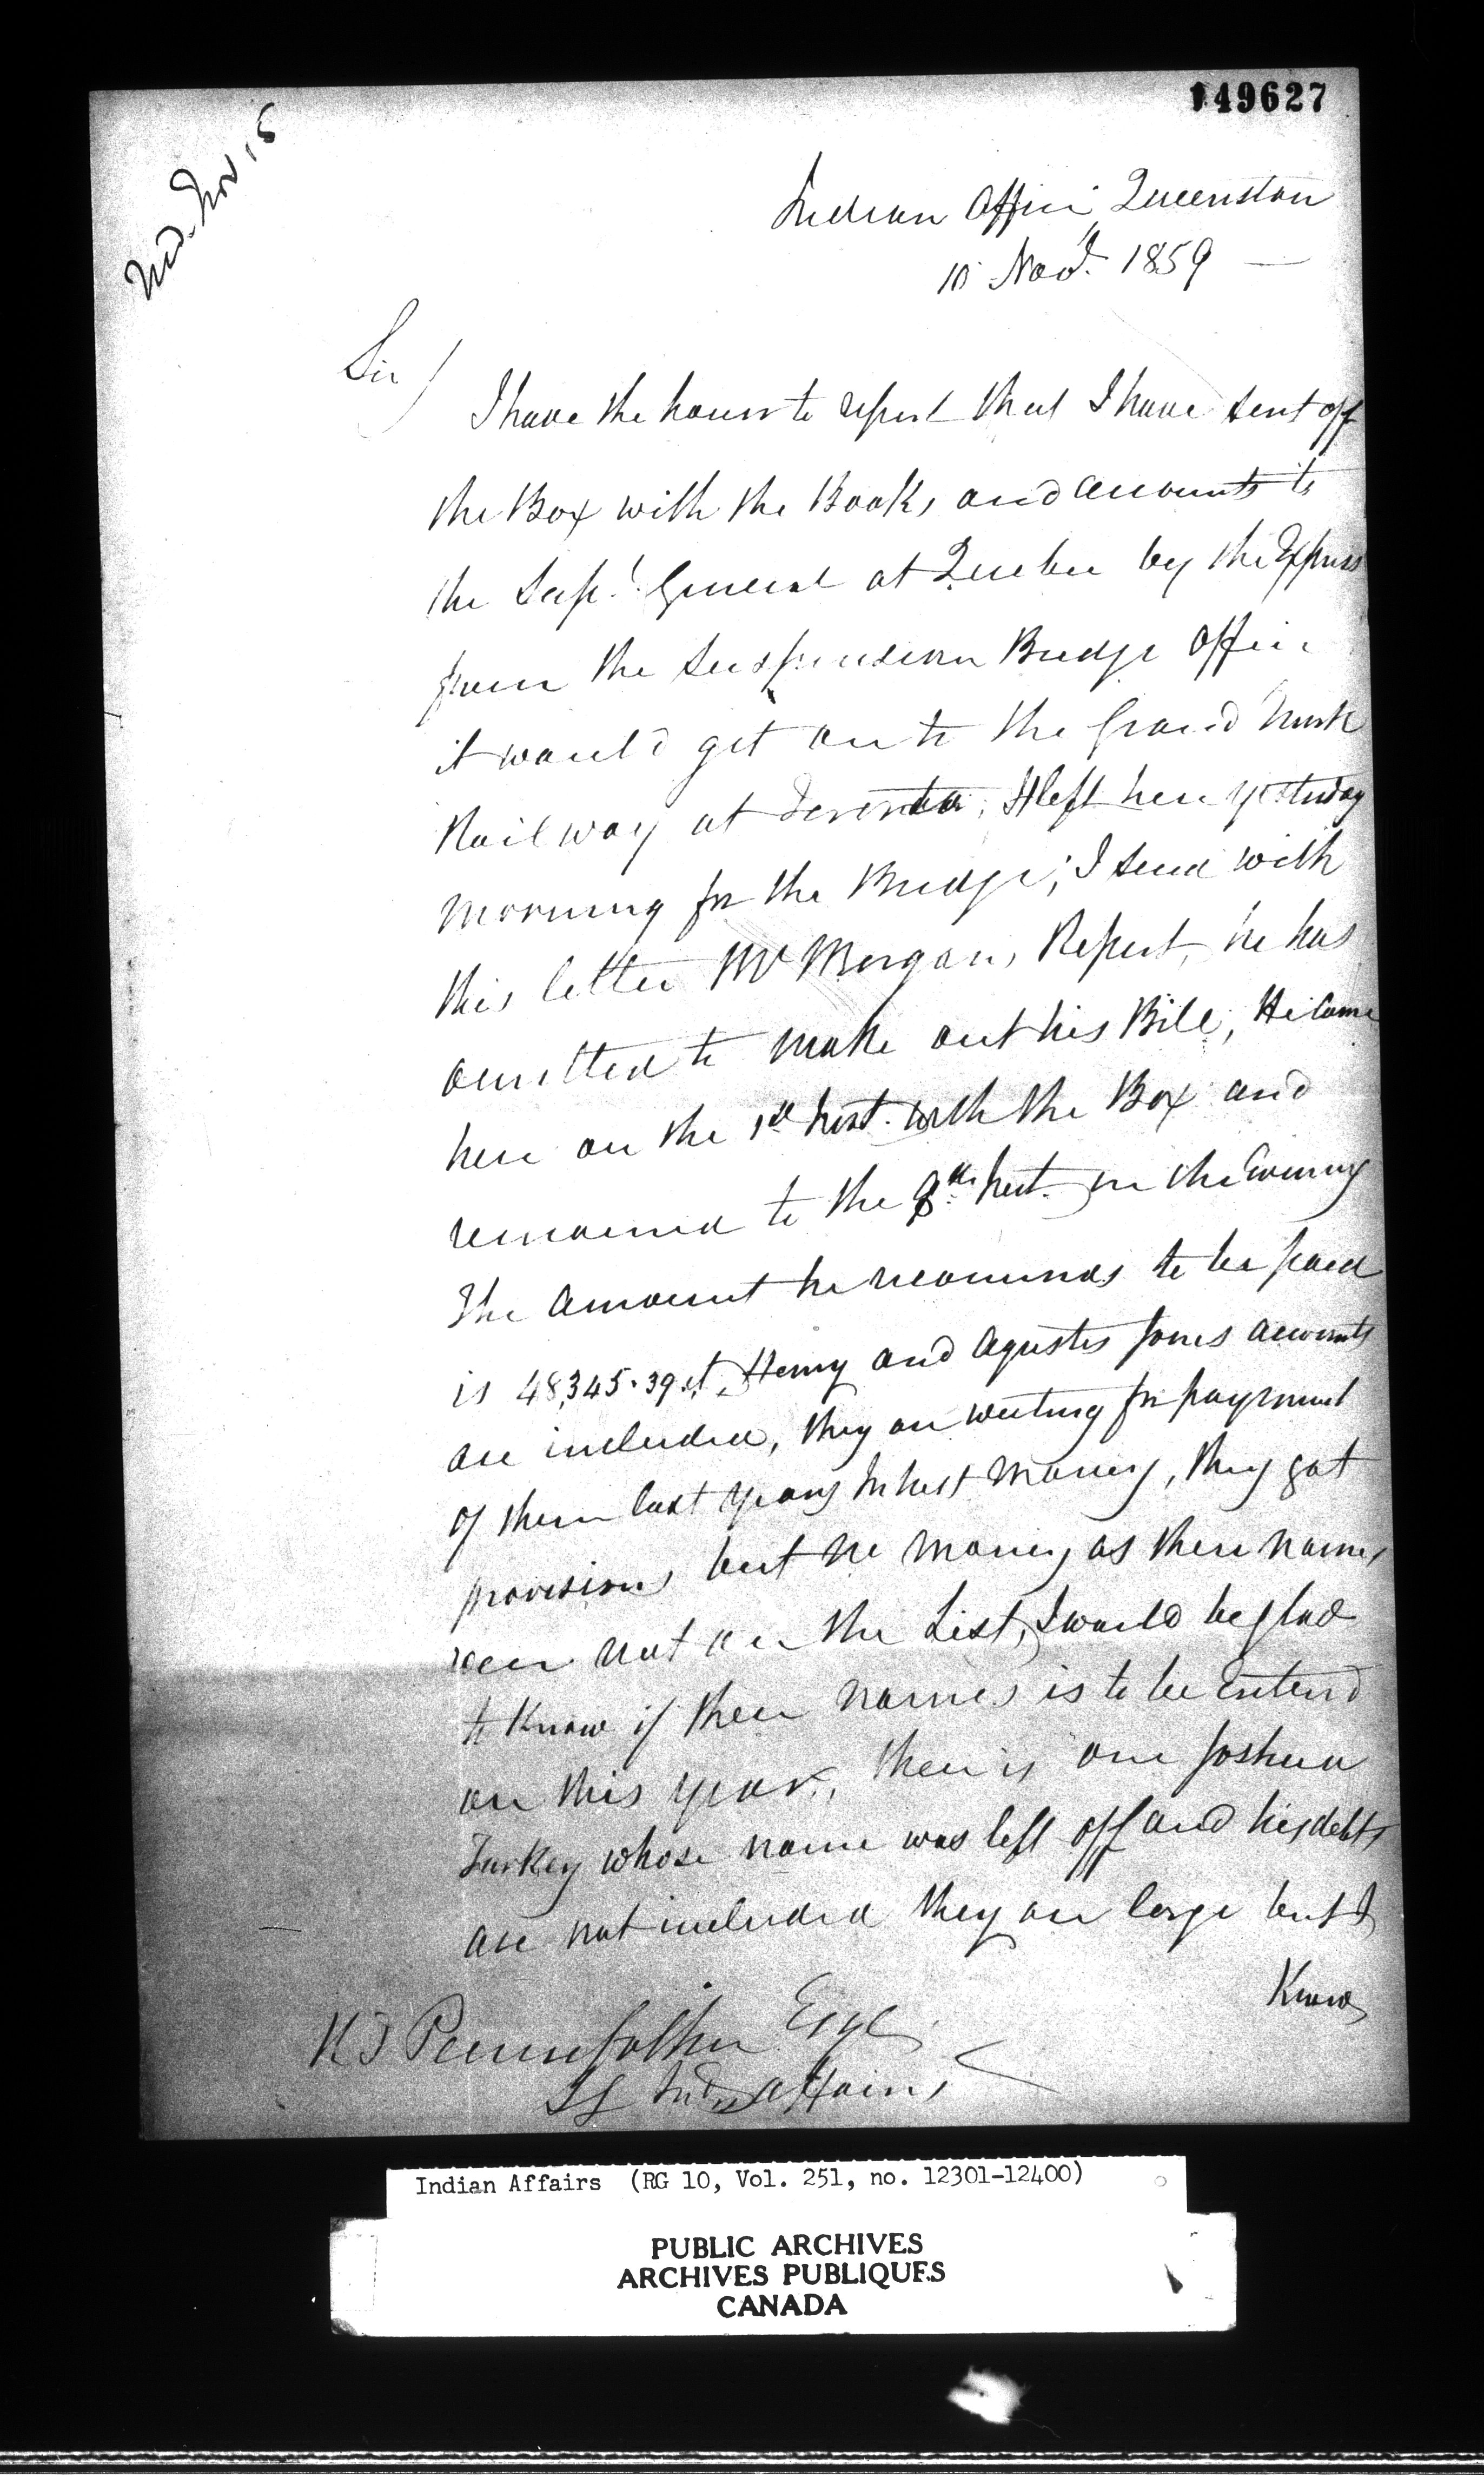 149627
Recd. Nov 15
Indian Office Queenston
10 Novr. 1859 —
Sir /
I have the honor to report that I have sent off
the Box with the Books and accounts to
the Supt. General at Quebec by the Express
from the Suspension Bridge Office
it would get on to the Grand Trunk
Railway at Toronto, It left here yesterday
morning for the Bridge; I send with
this letter Mr Morgans Report, he has
omitted to make out his Bill, He came
here on the 1st Inst. with the Box and
remained to the 8th Inst. in the Evening
The amount he recommends to be paid
is 48,345.39 ct. Henry and Agustes Jones accounts
are included, they are waiting for payment
of them last years Intrest money, they got
provisions but no money as there names
were not on the List, I would be glad
to know if there names is to be entered
on this year, there is one Joshua
Turkey whose name was left off and his debts
are not included they are large but I
Know
R T Pennefather Esqr
S G Indn affairs
Indian Affairs (RG 10, Vol. 251, no. 12301-12400)
PUBLIC ARCHIVES
ARCHIVES PUBLIQUES
CANADA